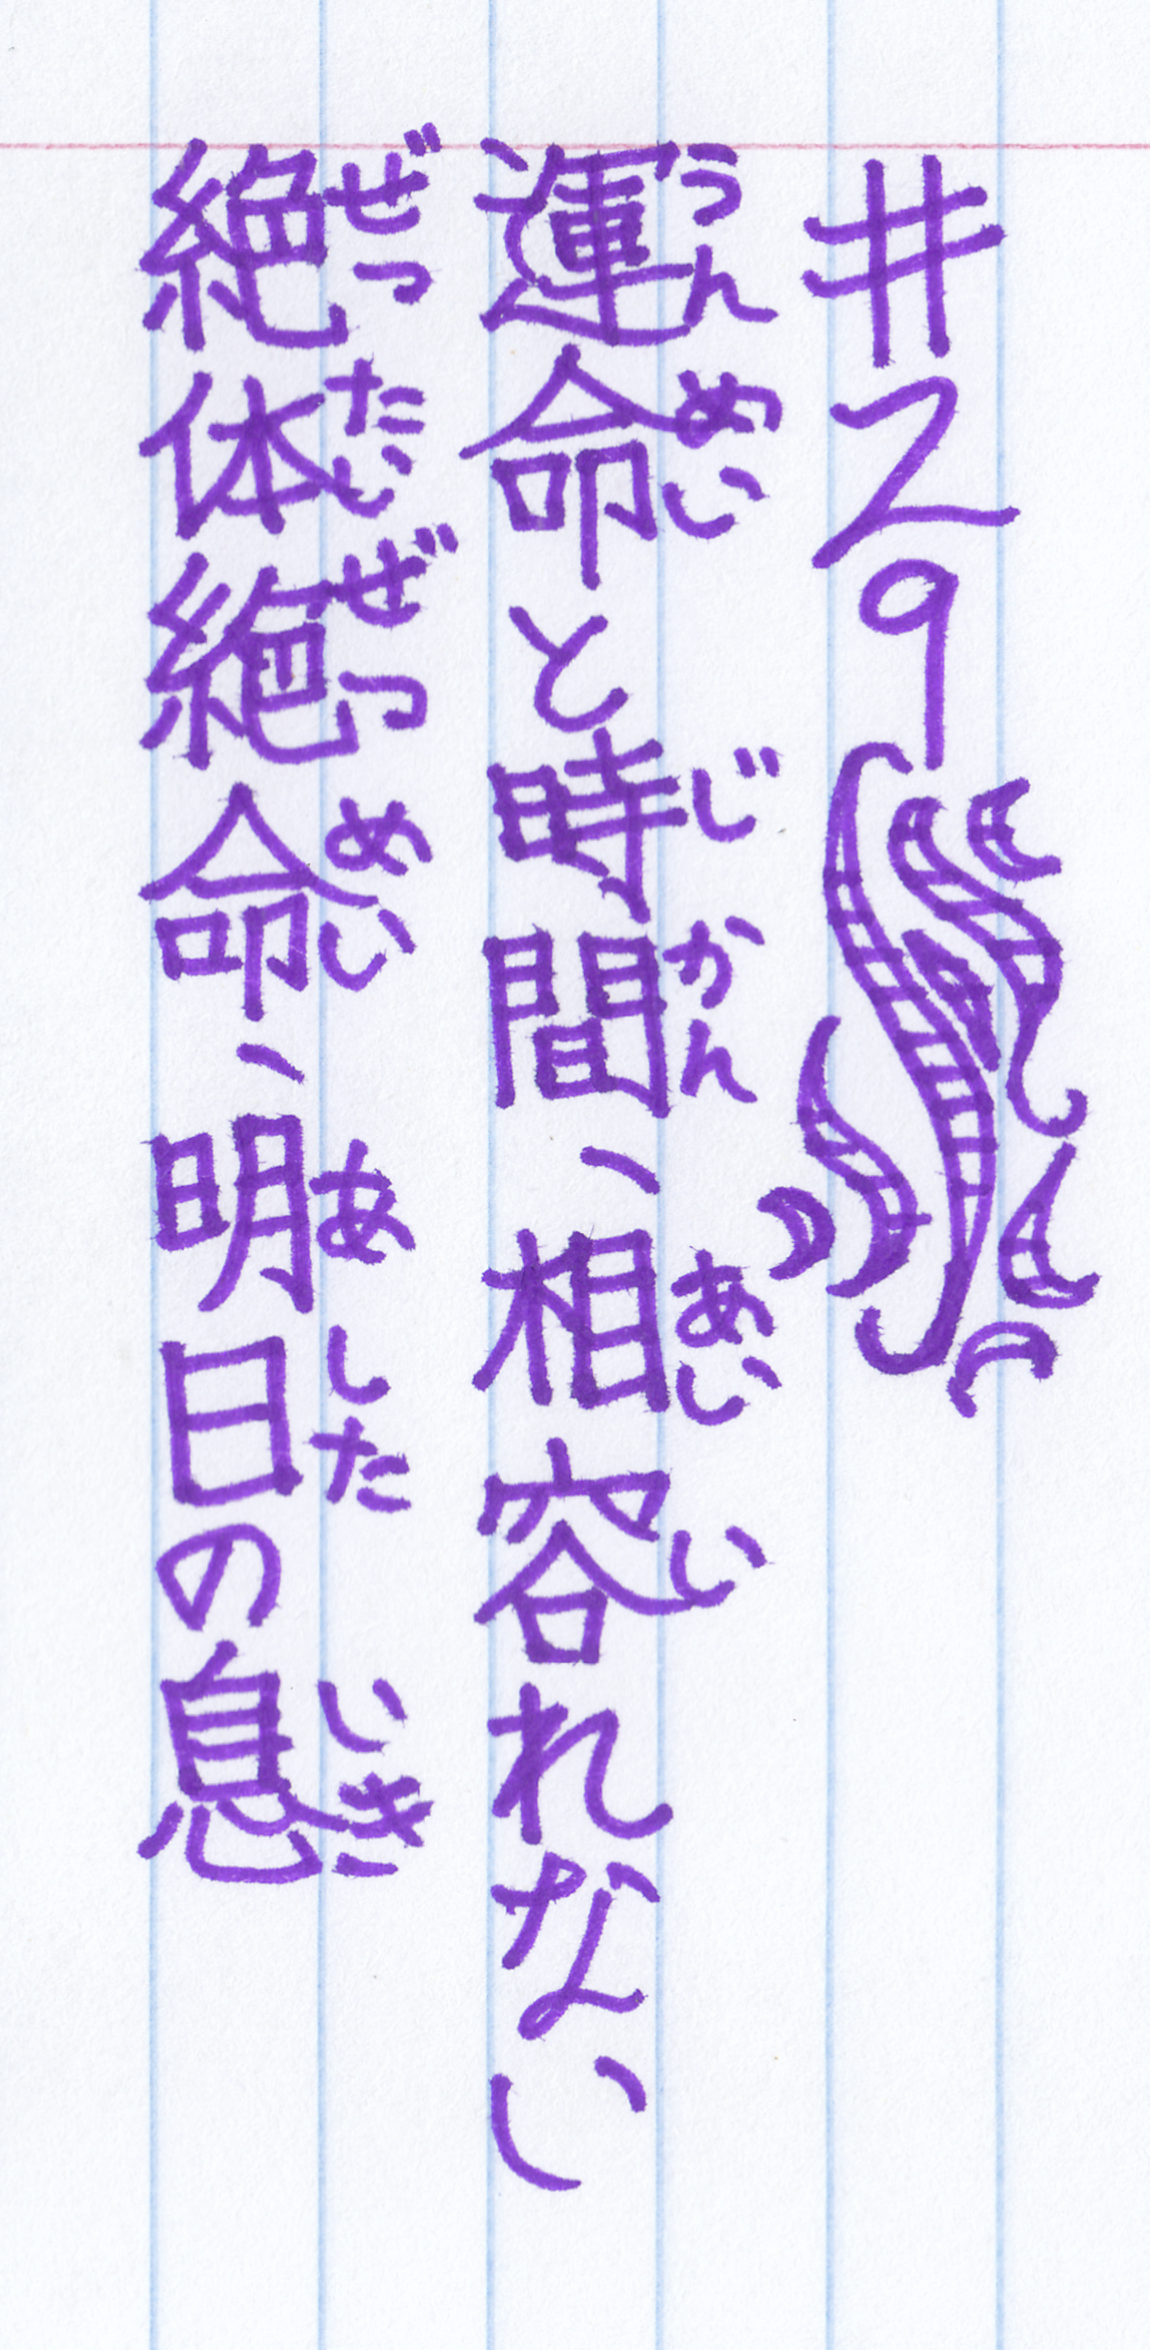 #29
運命と時間、相容れない
うんめい じかん あいい
絶体絶命、明日の息
ぜったいぜつめい あした いき